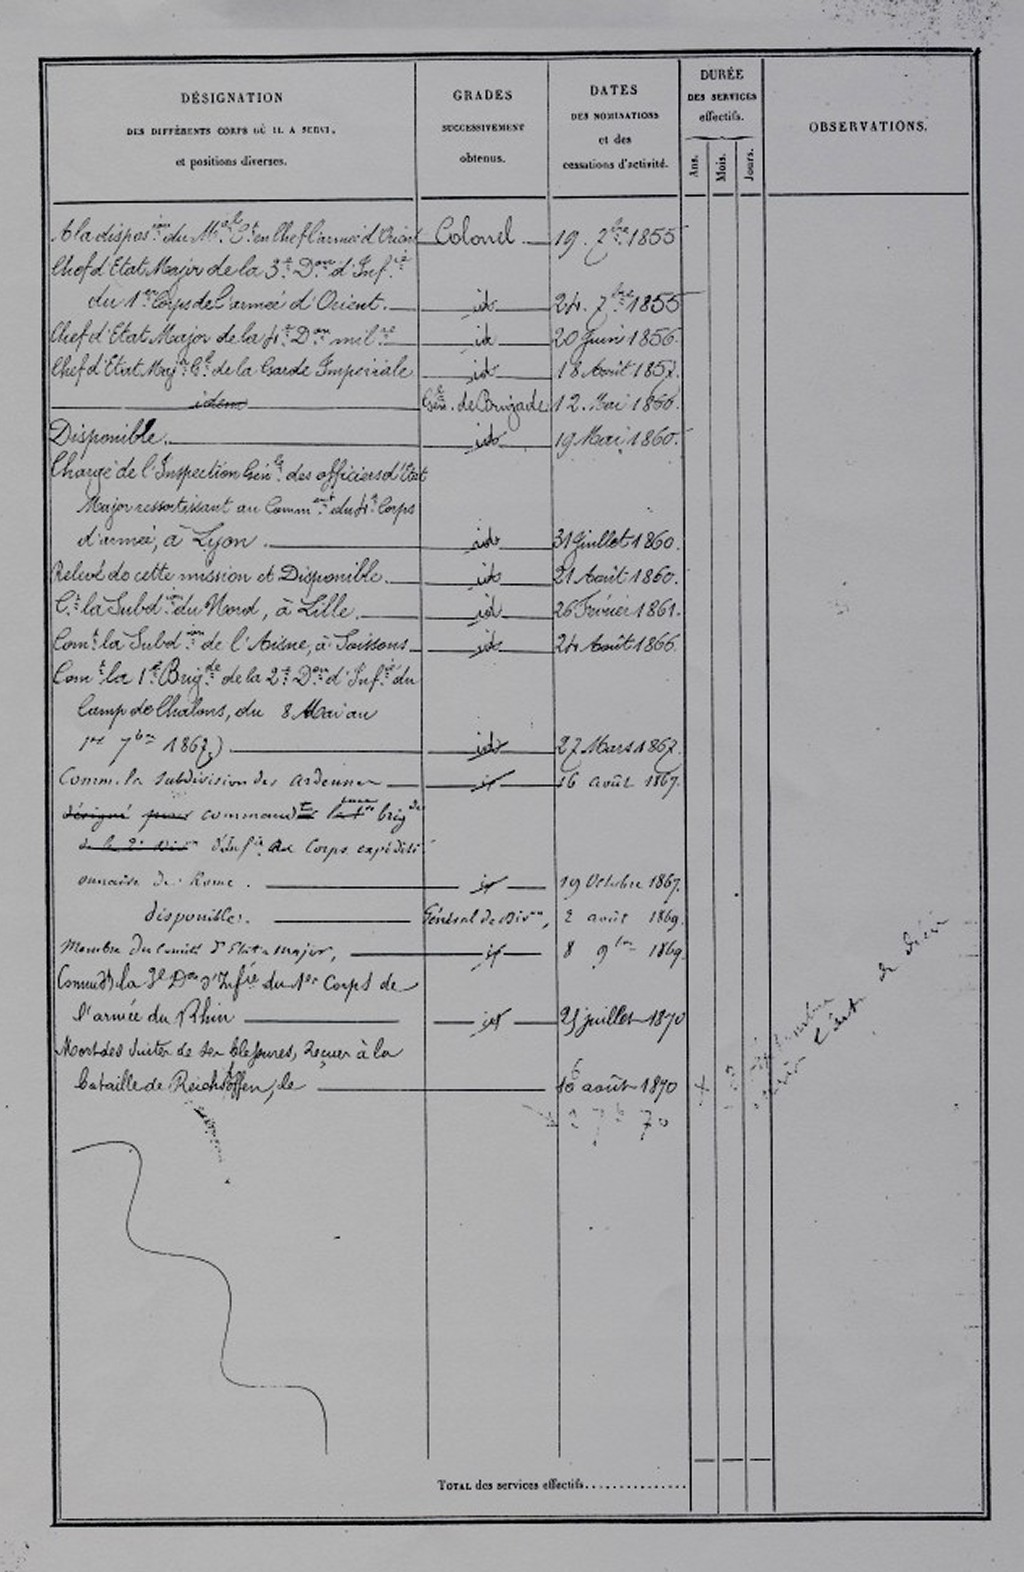 DÉSIGNATION
DES DIFFÉRENTS CORPS OÙ IL A SERVI,
et positions diverses.
GRADES
SUCCESSIVEMENT
obtenus.
DATES
DES NOMINATIONS
et des
cessations d'activité.
DURÉE
DES SERVICES
effectifs.
Ans.
Mois.
Jours.
OBSERVATIONS.
A la dispos.ion du M.al C.t en Chef l'armée d'Orient Colonel 19. 7bre 1855
Chef d'Etat Major de la 3e D.on d'Inf.ie
du 1er Corps de l'armée d'Orient. id 24. 7bre 1855
Chef d'Etat Major de la 4e D.on mil.re id 20 Juin 1856.
Chef d'Etat Maj.r G.l de la Garde Impériale id 18 Août 1857.
idem Gén.l de Brigade 12. Mai 1860.
Disponible. id 19 Mai 1860.
Chargé de l'Inspection Gén.le des officiers d'Etat
Major ressortissant au Comm.ent du 4e Corps
d'armée, à Lyon. id 31 Juillet 1860.
Relevé de cette mission et Disponible. id 21 Août 1860.
C.t la Subd.ion du Nord, à Lille. id 26 Février 1861.
Com.t la Subd.ion de l'Aisne, à Soissons id 24 Août 1866.
Com.t la 1re Brig.de de la 2e D.on d'Inf.ie du
Camp de Chalons, du 8 Mai au
1er 7bre 1867) id 27 Mars 1867.
Comm. la subdivision des Ardennes id 16 août 1867.
désigné pour command.t la 1re brig.de
de la 2e Div.on d'Inf.ie du Corps expéditi
onnaire de Rome. id 19 Octobre 1867.
disponible. Général de Div.on, 2 août 1869.
Membre du Comité d'Etat-major, id 8 9bre 1869.
Command.t la 3e D.on d'Inf.rie du 1er Corps de
l'armée du Rhin id 21 juillet 1870
Mort des suites de ses blessures, reçues à la
bataille de Reichsoffen, le 6 août 1870
7b 70
TOTAL des services effectifs